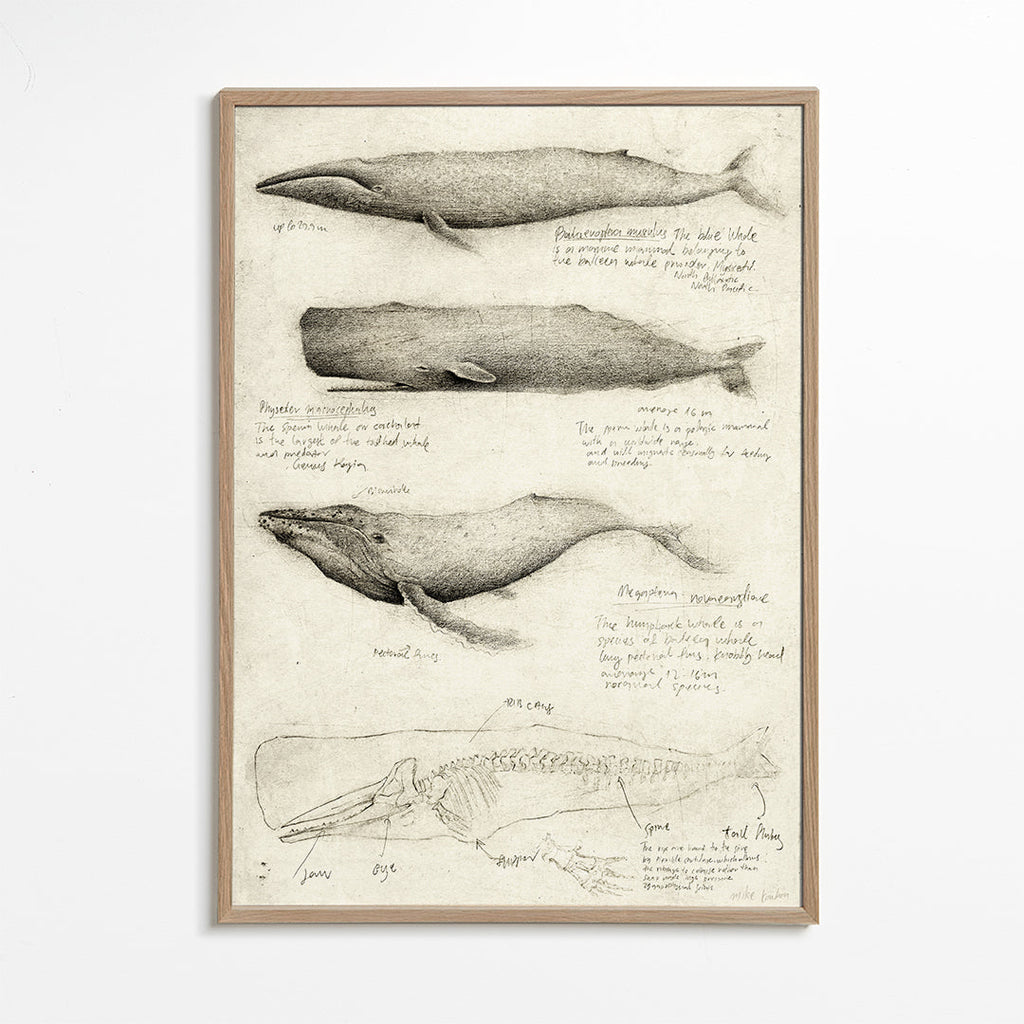 up to 29.9m
Balaenoptera musculus The blue Whale
is a marine mammal belonging to
the baleen whale Mysticeti.
North Atlantic
North Pacific
Physeter macrocephalus
The sperm whale or cachalot
is the largest of the toothed whale
and predator
Genus Kogia
average 16 m
The sperm whale is a pelagic mammal
with a worldwide range.
and will migrate seasonally for feeding
and breeding.
Blowhole
Megaptera novaeangliae
The humpback whale is a
species of baleen whale
long pectoral fins. knobbly head
average 12-16m
rorqual species.
Pectoral fins
RIB CAGE
Jaw
eye
flipper
spine
tail flukes
The ribs are bound to the spine
by flexible cartilage, which allows
the ribcage to collapse rather than
snap under high pressure
mike